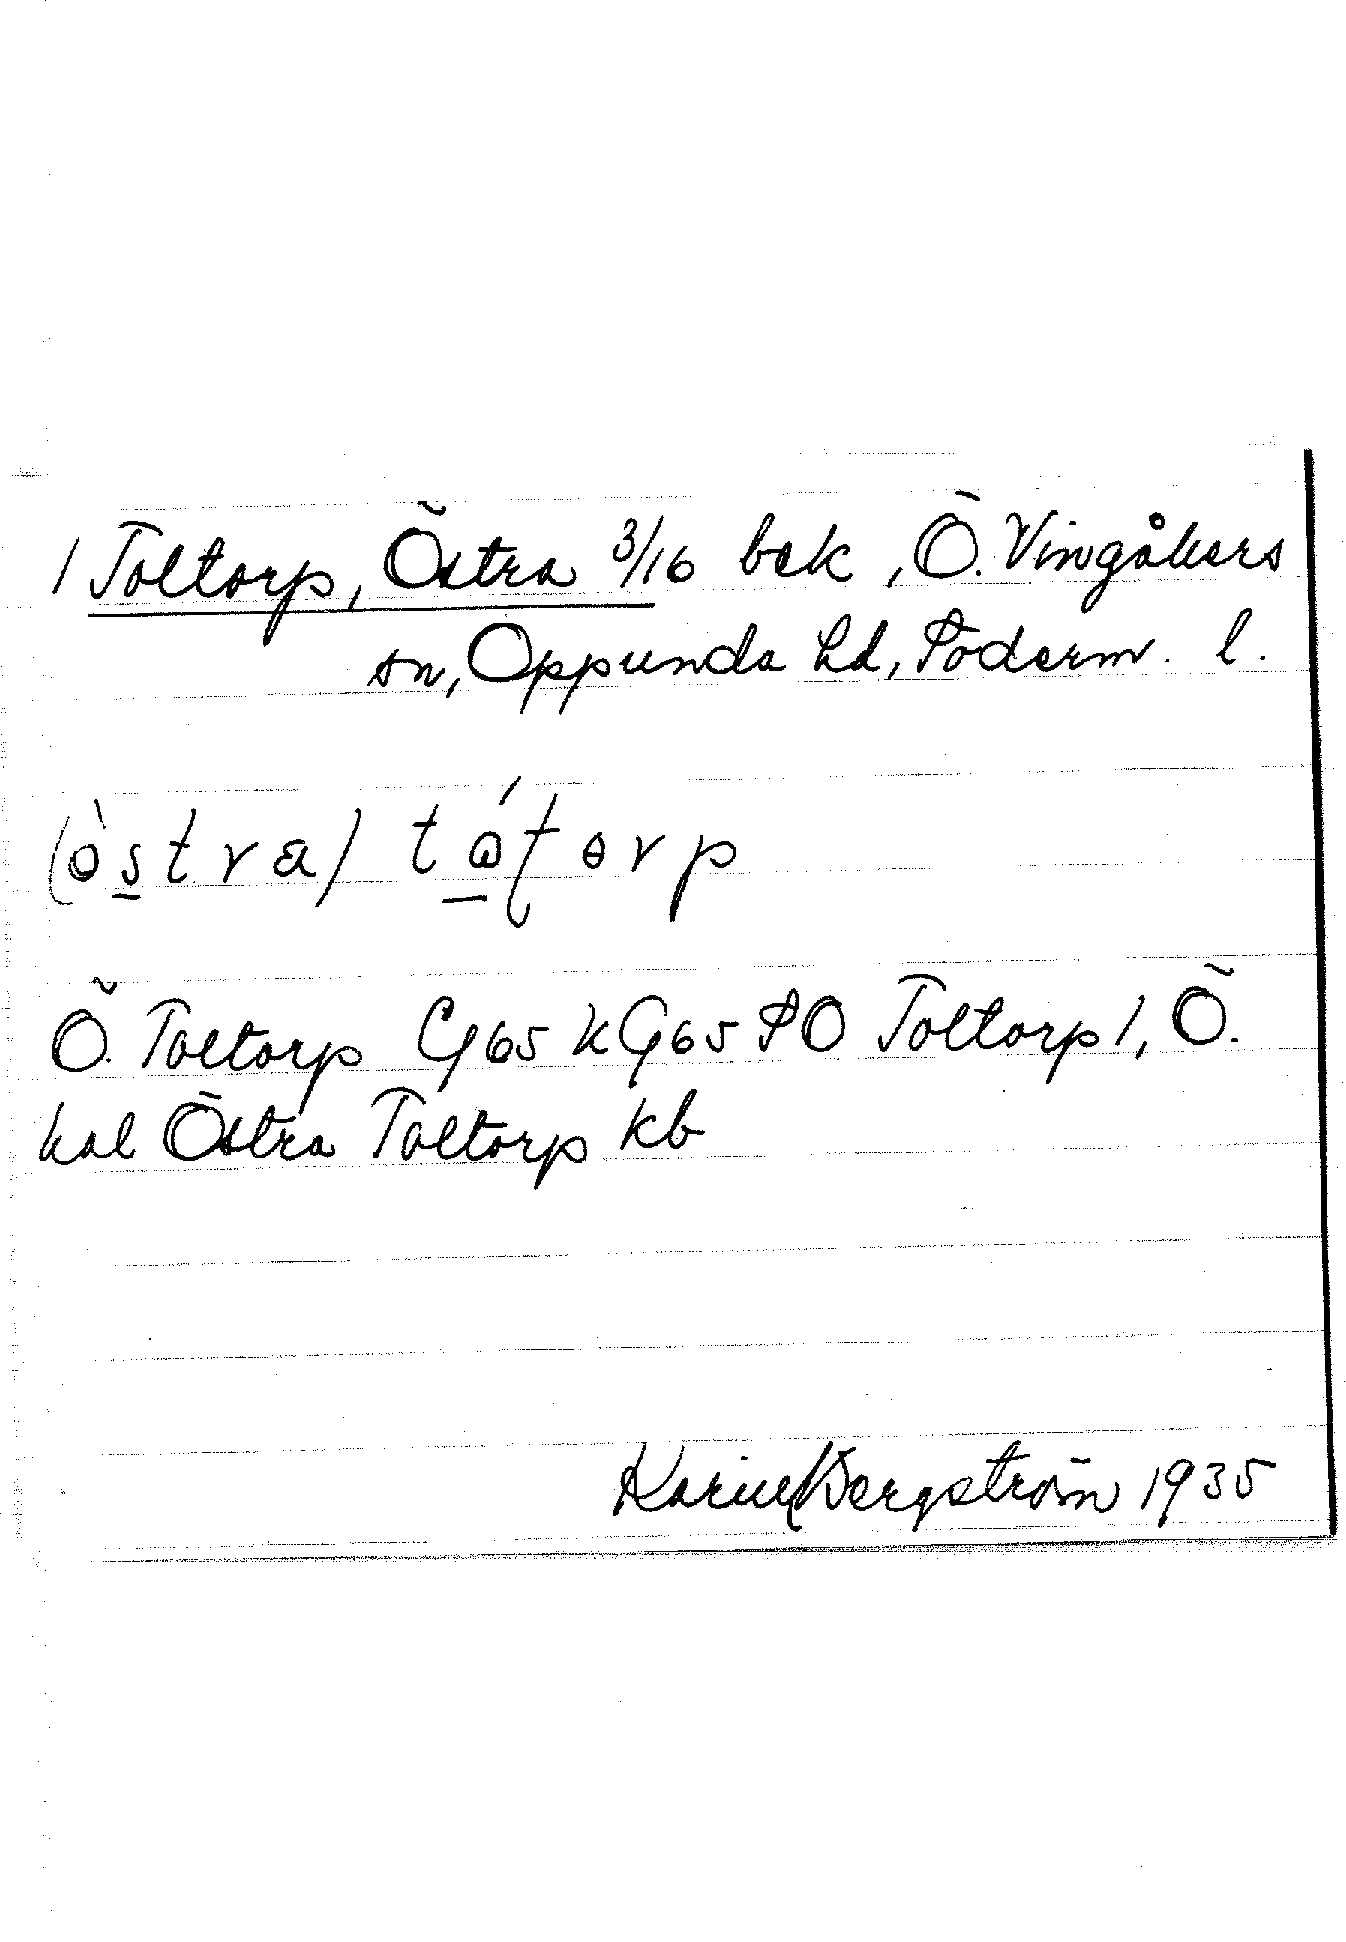 1 Toltorp, Östra 3/16 bek, Ö. Vingåkers
sn, Oppunda hd, Söderm. l.
(òstra) tó̱ƭɵrp
Ö. Toltorp G65 kG65 SO Toltorp 1, Ö.
kal Östra Toltorp kb
Karin Bergström 1935